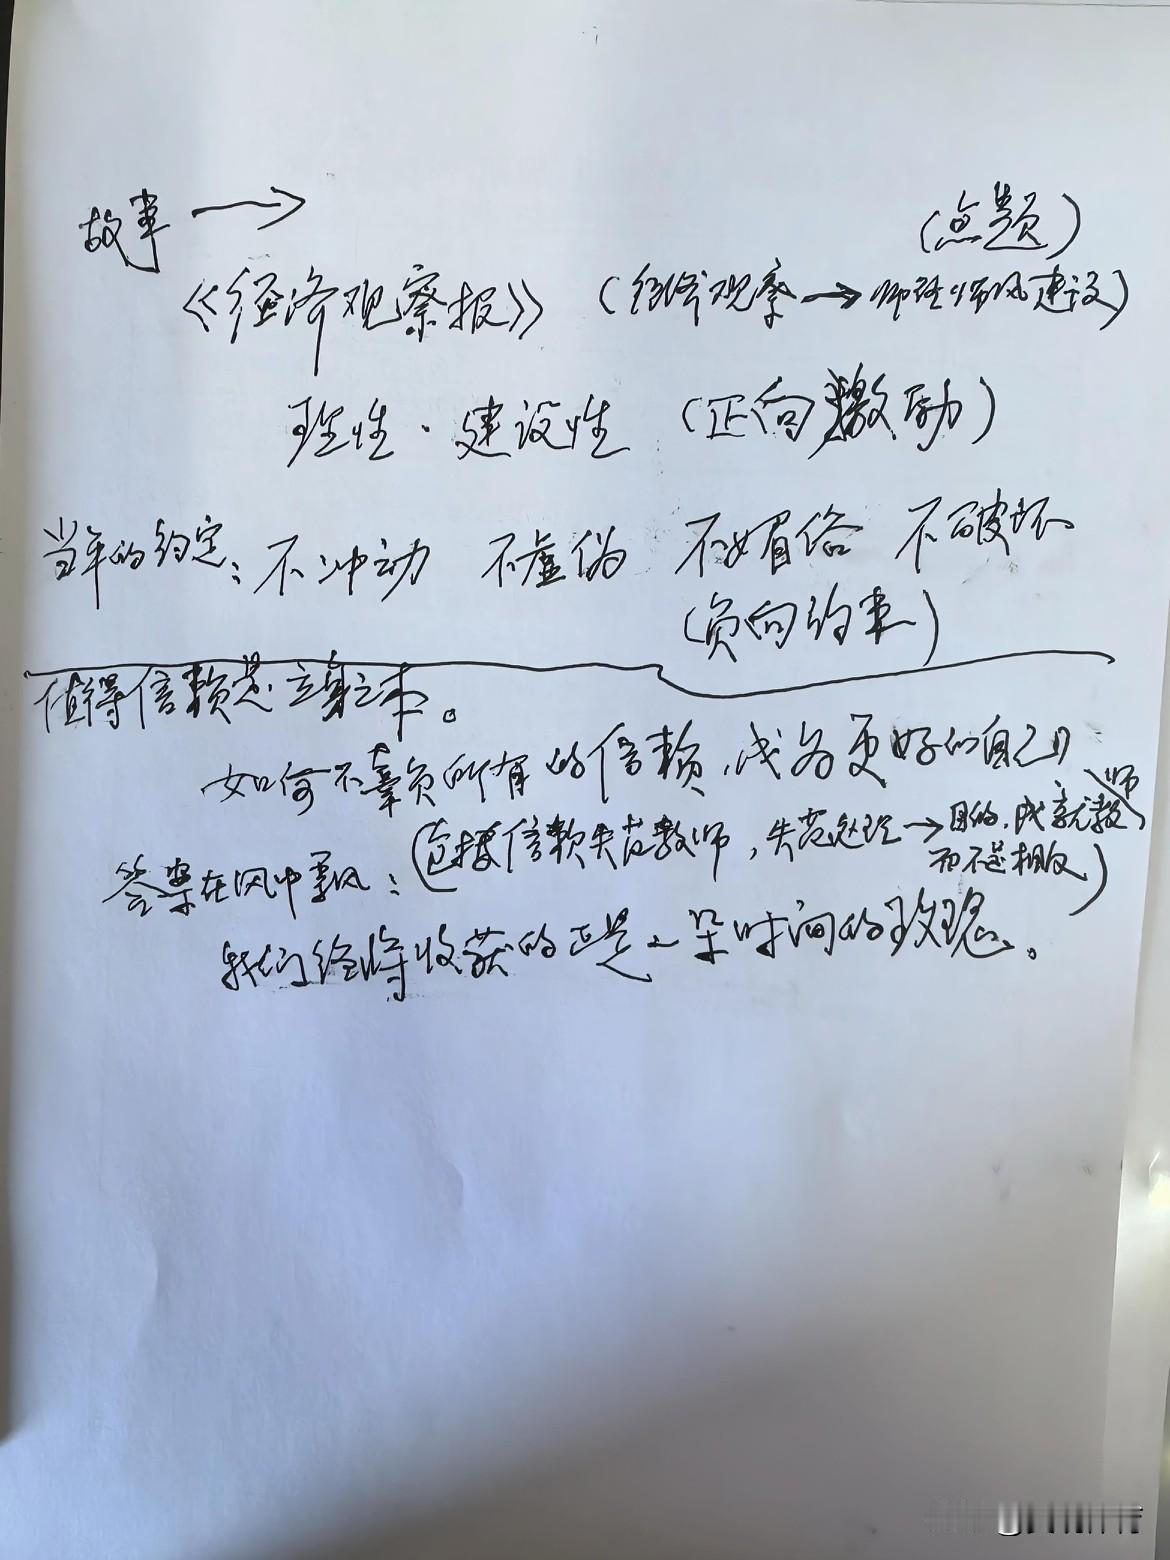 故事 → (点题)
《经济观察报》 (经济观察→师德师风建设)
理性·建设性 (正向激励)
当年的约定: 不冲动 不虚伪 不媚俗 不破坏
(负向约束)
值得信赖是立身之本。
如何不辜负所有的信赖,成为更好的自己?
答案在风中飘: (包括信赖失范教师,失范处理→目的,成就教师
而不是相反)
我们终将收获的正是一朵时间的玫瑰。